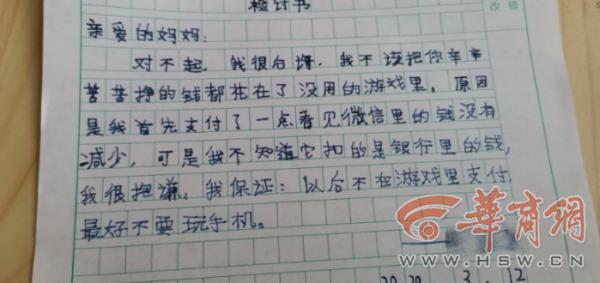 检讨书
改错
亲爱的妈妈:
对不起,我很后悔,我不该把你辛辛
苦苦挣的钱都花在了没用的游戏里,原因
是我首先支付了一点看见微信里的钱没有
减少,可是我不知道它扣的是银行里的钱,
我很抱谦,我保证:以后不在游戏里支付
最好不要玩手机。
华商网
WWW.HSW.CN
2020 3.12